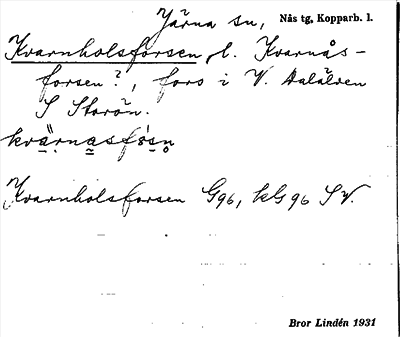 Järna sn, Nås tg, Kopparb. l.
Kvarnholsforsen, l. Kvarnås-
forsen?, fors i V. Dalälven
S Storön.
kvä̤rnasfȯ̤sn̥
Kvarnholsforsen G96, kG96 SV.
Bror Lindén 1931